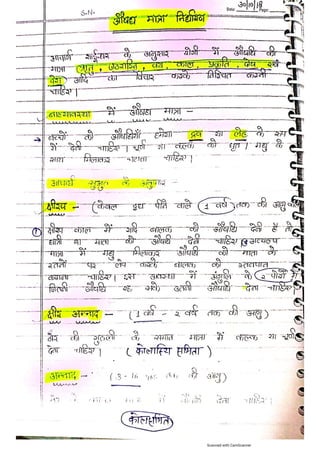 S.N.- Date 30/10/18 Page
औषध मात्रा निर्धारण
आचार्य शार्ङ्गधर के अनुसार रोगी में औषधि की
मात्रा ऋतु, जठराग्नि, वय, काल, प्रकृति, देष एवं
रोग आदि का विचार करके निश्चित करनी
चाहिए।
बाल्यावस्था में औषध मात्रा -
बच्चों को औषधियाँ हमेशा द्रव या लेह के रूप
में देनी चाहिए। चूर्ण या कल्क को दूध। मधु के
साथ मिलाकर चटाना चाहिए।
आचार्य सुश्रुत के अनुसार -
क्षीरप - (केवल दूध पीने वाले 1 वर्ष तक की आयु
क्षीरप काल में यदि बालक को औषधि देनी है तो
धात्री या माता को औषधि देनी चाहिए। अत्यल्प
मात्रा में मधु मिलाकर औषधी को माता के
स्तनों पर लेप करके बालक को स्तनपान
कराना चाहिए। इस अवस्था में अंगुलि के 2 पोरों में
जितनी औषधि आ सके उतनी औषधी देना चाहिए
क्षीर अन्नाद - (1 वर्ष - 2 वर्ष तक की आयु)
बेर की गुठली के समान मात्रा में कल्क या चूर्ण
देना चाहिए। (कोलास्थि सम्मिता)
अन्नाद - (3-16 तक की आयु)
के समान मात्रा में देना चाहिए।
कोलसम्मित
Scanned with CamScanner